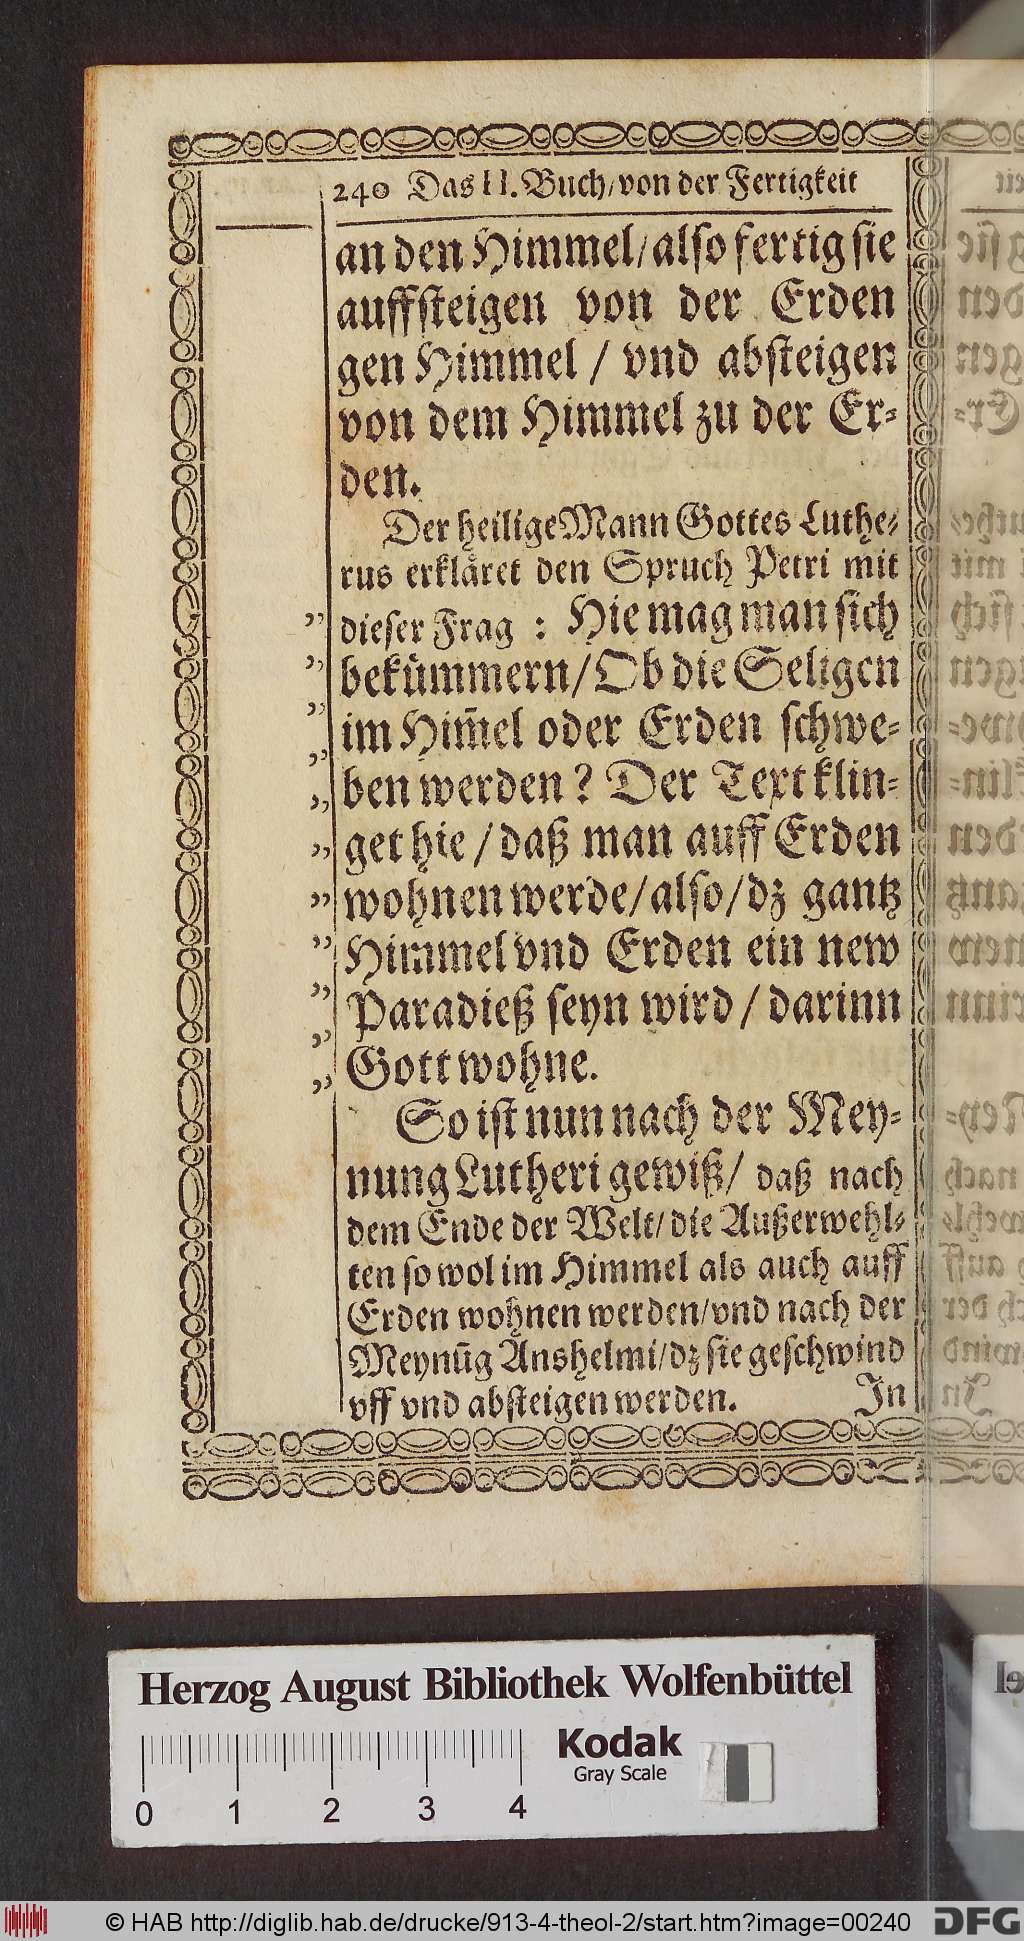 240 Das II. Buch/von der Fertigkeit
an den Himmel/also fertig sie
auffsteigen von der Erden
gen Himmel / vnd absteigen
von dem Himmel zu der Er-
den.
Der heilige Mann Gottes Luthe-
rus erklåret den Spruch Petri mit
dieser Frag : Hie mag man sich
bekům̃ern/Ob die Seligen
im Him̃el oder Erden schwe-
ben werden? Der Text klin-
get hie / daß man auff Erden
wohnen werde/also/dz gantz
Himmel vnd Erden ein new
Paradieß seyn wird / darinn
Gott wohne.
So ist nun nach der Mey-
nung Lutheri gewiß/ daß nach
dem Ende der Welt/die Außerwehl-
ten so wol im Himmel als auch auff
Erden wohnen werden/vnd nach der
Meynūg Anshelmi/dz sie geschwind
vff vnd absteigen werden.
In
Herzog August Bibliothek Wolfenbüttel
Kodak
Gray Scale
0 1 2 3 4
© HAB http://diglib.hab.de/drucke/913-4-theol-2/start.htm?image=00240
DFG